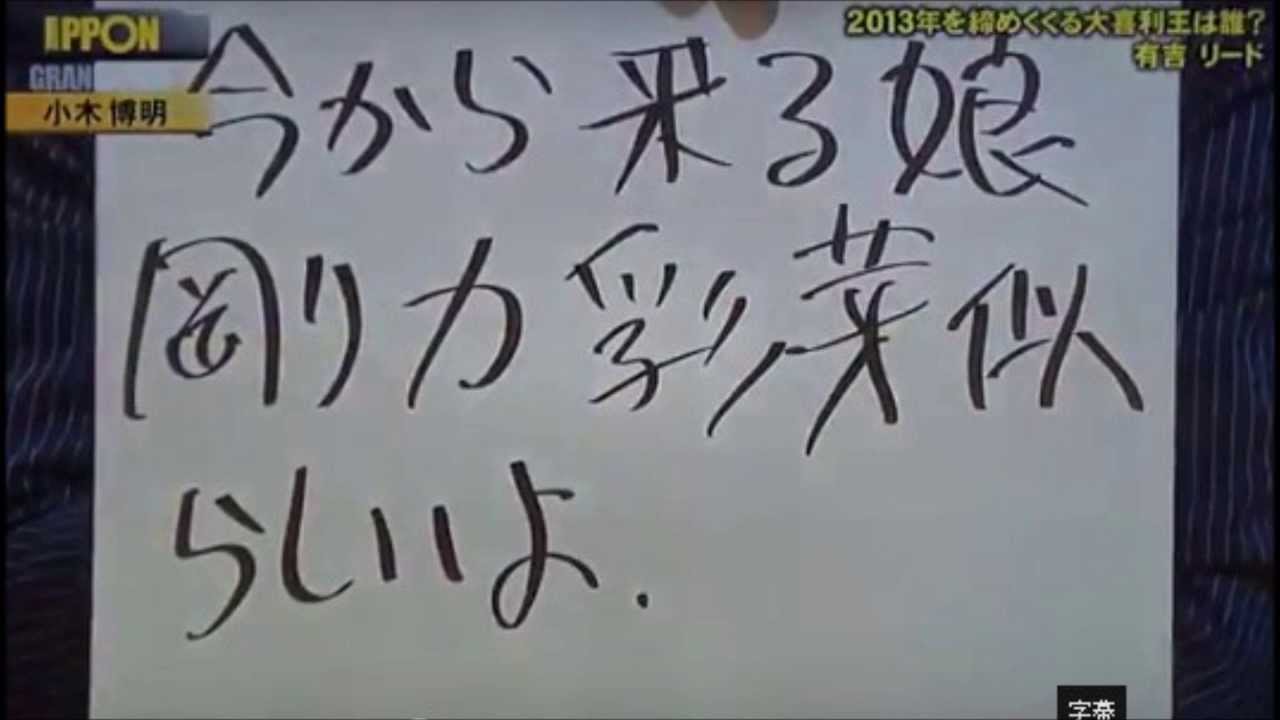 IPPON
GRAN
小木 博明
2013年を締めくくる大喜利王は誰?
有吉 リード
今から来る娘
剛力彩芽似
らしいよ.
字幕